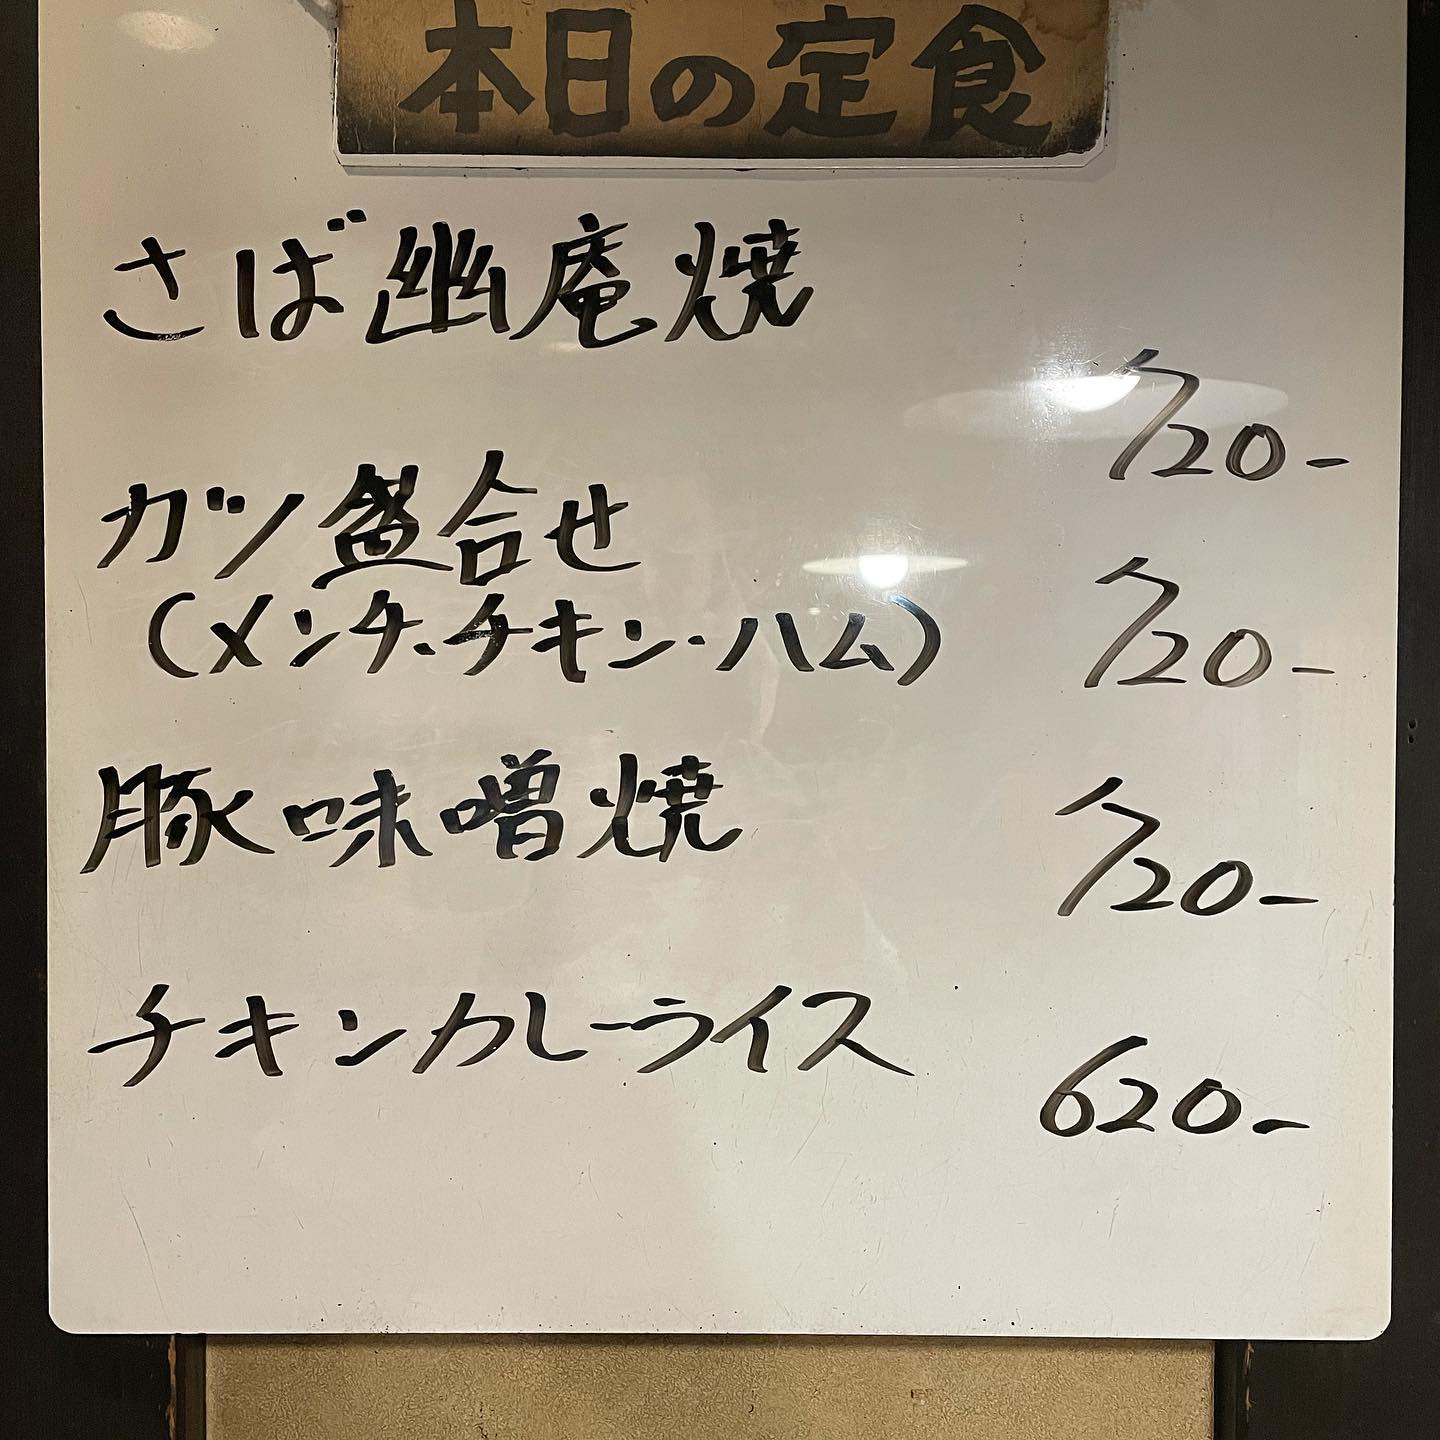 本日の定食
さば幽庵焼
720-
カツ盛合せ
(メンチ、チキン・ハム)
720-
豚味噌焼
720-
チキンカレーライス
620-